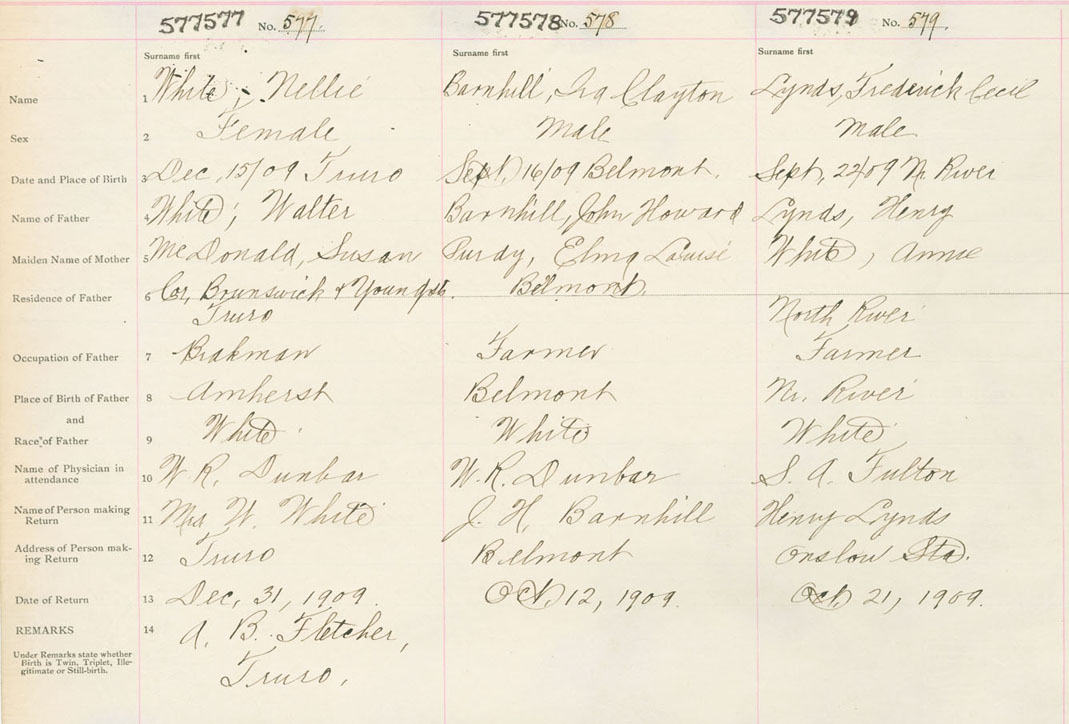 577577 No. 577. 577578 No. 578 577579 No. 579.
Surname first Surname first Surname first
Name 1 White, Nellie Barnhill, Ira Clayton Lynds, Frederick Cecil
Sex 2 Female Male Male
Date and Place of Birth 3 Dec, 15/09 Truro Sept, 16/09 Belmont. Sept, 22/09 Nr. River
Name of Father 4 White, Walter Barnhill, John Howard Lynds, Henry
Maiden Name of Mother 5 McDonald, Susan Purdy, Elma Louise White, Annie
Residence of Father 6 Cor, Brunswick & Young sts. Belmont.
Truro North River
Occupation of Father 7 Brakman Farmer Farmer
Place of Birth of Father 8 Amherst Belmont Nr. River
and
Race of Father 9 White White White
Name of Physician in
attendance 10 W. R. Dunbar W. R. Dunbar S. A. Fulton
Name of Person making
Return 11 Mrs W. White J. H. Barnhill Henry Lynds
Address of Person mak-
ing Return 12 Truro Belmont Onslow Sta.
Date of Return 13 Dec, 31, 1909. Oct 12, 1909. Oct 21, 1909.
REMARKS 14 A. B. Fletcher,
Under Remarks state whether
Birth is Twin, Triplet, Ille-
gitimate or Still-birth.
Truro,